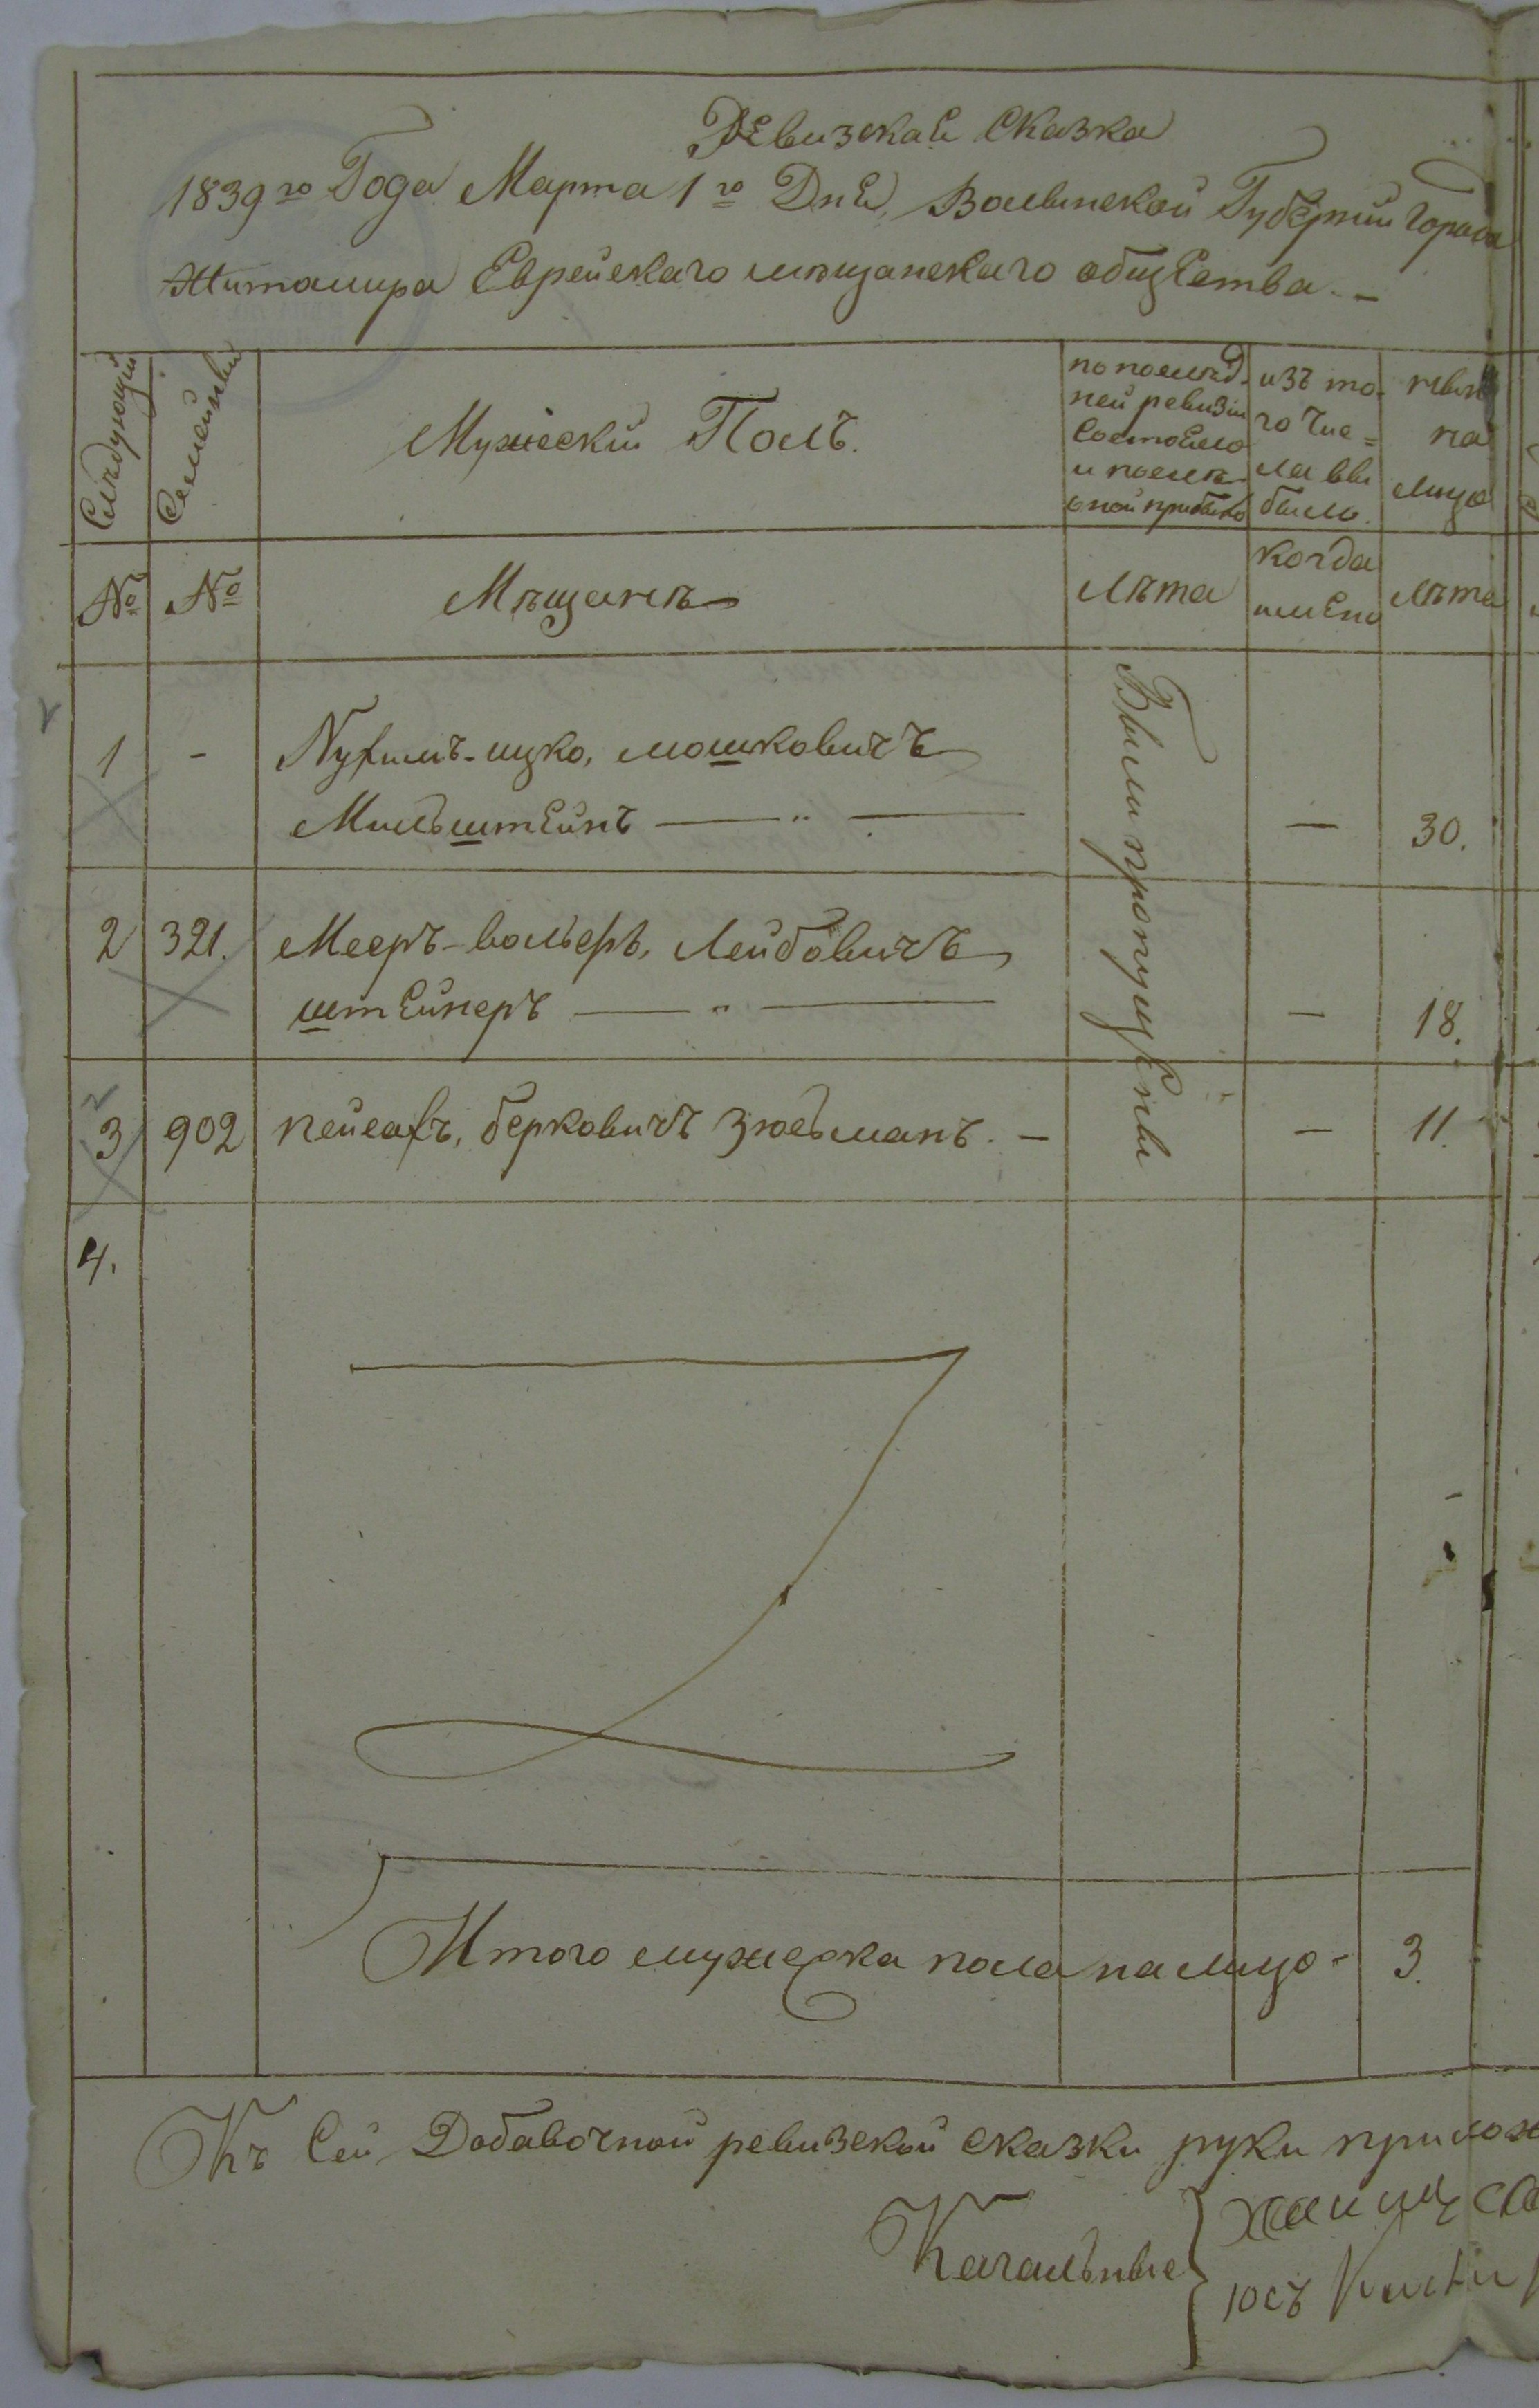 Ревизская Сказка
1839го Года Марта 1го Дня, Волынской Губернии города
Житомира Еврейскаго мещанскаго общества. —
Следующий
Семейный
Мужеский Полъ.
по послед-
ней ревизіи
состояло
и после
оной прибыло
изъ то-
го чис=
ла вы
было.
нынѣ
на
лицо
№
№
Мѣщанѣ
лѣта
когда
имено
лѣта
Были пропущены
1 -
Нухимъ-ицко, мошковичъ
Мильштейнъ — „ —
— 30.
2 321.
Мееръ-вольфъ, Лейбовичъ
штейнеръ — „ —
— 18.
3 902 пейсахъ, берковичъ Зюсьманъ. —
— 11.
4.
Итого мужеска пола на лицо - 3.
Къ сей Добавочной ревизской сказки руки прилож
Кагальные
хаимъ
юсъ